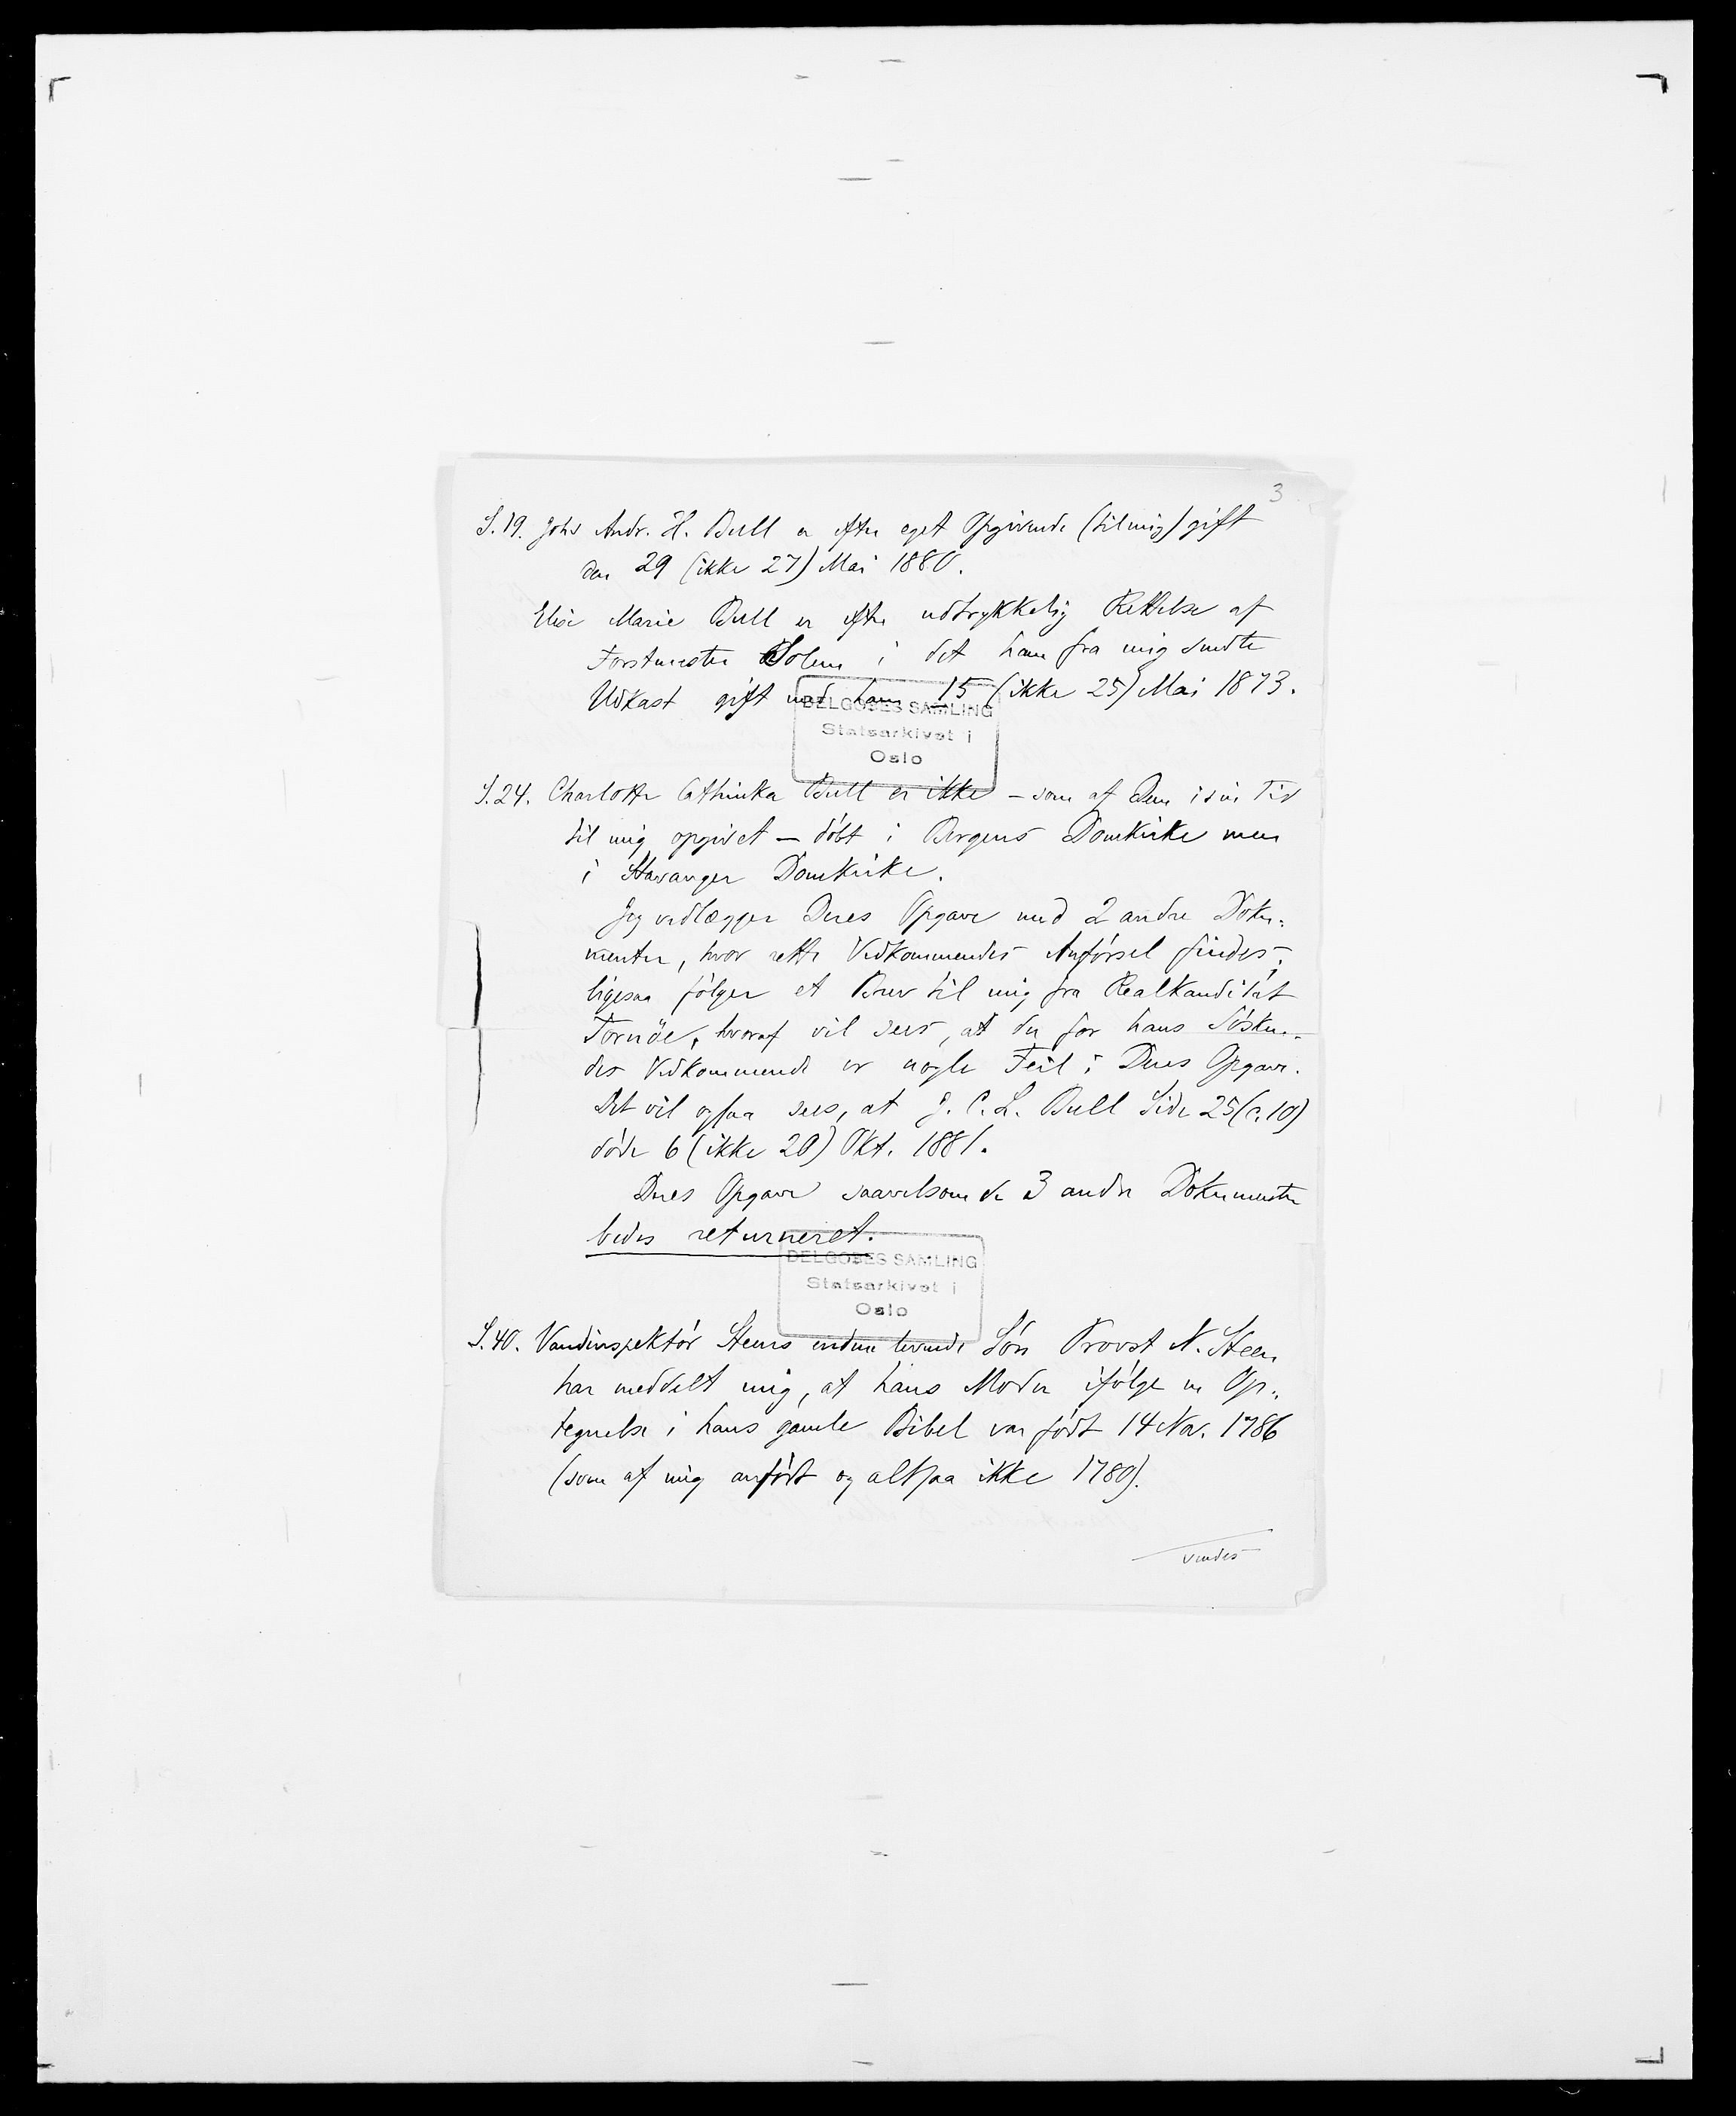 3
S.19. Johs Andr. H. Bull er efter eget Opgivende (til mig) gift
den 29 (ikke 27) Mai 1880.
Elise Marie Bull er efter udtrykkelig Rettelse af
Forstmester Solem i det ham fra mig sendte
Udkast gift med ham 15 (ikke 25) Mai 1873.
DELGOBES SAMLING
Statsarkivet i
Oslo
S.24. Charlotte Cathinka Bull er ikke – som af Dem i sin Tid
til mig opgivet – döbt i Bergens Domkirke men
i Stavanger Domkirke.
Jeg vedlægger Deres Opgave med 2 andre Doku-
menter, hvor rette Vedkommendes Anförsel findes;
ligesaa fölger et Brev til mig fra Realkandidat
Tornöe, hvoraf vil sees, at der for hans Sösken-
des Vedkommende er nogle Feil i Deres Opgave.
Det vil ogsaa sees, at J. C. L. Bull Side 25 (c. 10)
döde 6 (ikke 20) Okt. 1881.
Deres Opgave saavelsom de 3 andre Dokumenter
bedes returneret.
DELGOBES SAMLING
Statsarkivet i
Oslo
S.40. Vandinspektör Steens endnu levende Sön Provst N. Steen
har meddelt mig, at hans Moder ifölge en Op-
tegnelse i hans gamle Bibel var födt 14 Nov. 1786
(som af mig anfört og altsaa ikke 1780).
vendes